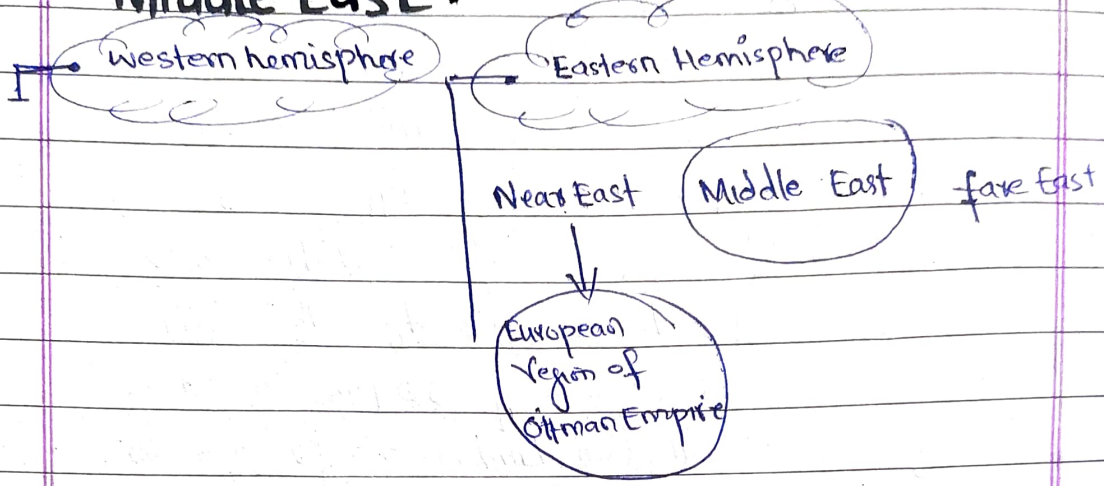 Middle East.
Western hemisphere
Eastern Hemisphere
Near East
Middle East
fare East
European
region of
Ottman Empire